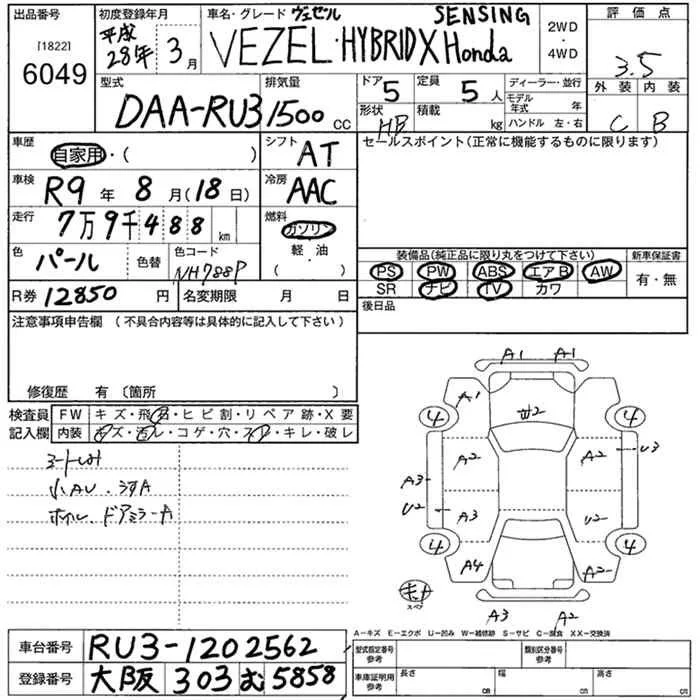 出品番号
[1822]
6049
初度登録年月
平成
28年 3月
車名・グレード ヴェゼル SENSING
VEZEL・HYBRID X Honda
2WD
・
4WD
評価点
3.5
外装 内装
C B
型式
DAA-RU3
排気量
1500 cc
ドア 5
定員 5人
形状 HB
積載 kg
ディーラー・並行
モデル年式 年
ハンドル 左・右
車歴
自家用・( )
シフト
AT
セールスポイント(正常に機能するものに限ります)
車検 R9年 8月(18日)
冷房 AAC
走行 7万9千488 km
燃料
ガソリン
軽・油
( ・ )
色 パール 色替
色コード
NH788P
装備品(純正品に限り丸をつけて下さい)
PS PW ABS エアB AW
SR ナビ TV カワ
新車保証書
有・無
R券 12850円
名変期限 月 日
後日品
注意事項申告欄 (不具合内容等は具体的に記入して下さい)
修復歴 有〔箇所 〕
検査員
記入欄
FW キズ・飛石・ヒビ割・リペア跡・X要
内装 キズ・汚レ・コゲ・穴・スレ・キレ・破レ
小AU・うすA
ホイル・ドアミラーA
A1 A1
A1
4 4
#2
A2 A2
U3
A3
U2
A3 U2
4 4
A4 A2
スペ
A3 A2
A−キズ E−エクボ U−凹み W−補修跡 S−サビ C−腐食 XX−交換済
車台番号 RU3-1202562
登録番号 大阪 303 む 5858
型式指定番号
参考
類別区分番号
車庫証明用
参考
長さ cm
幅 cm
高さ cm